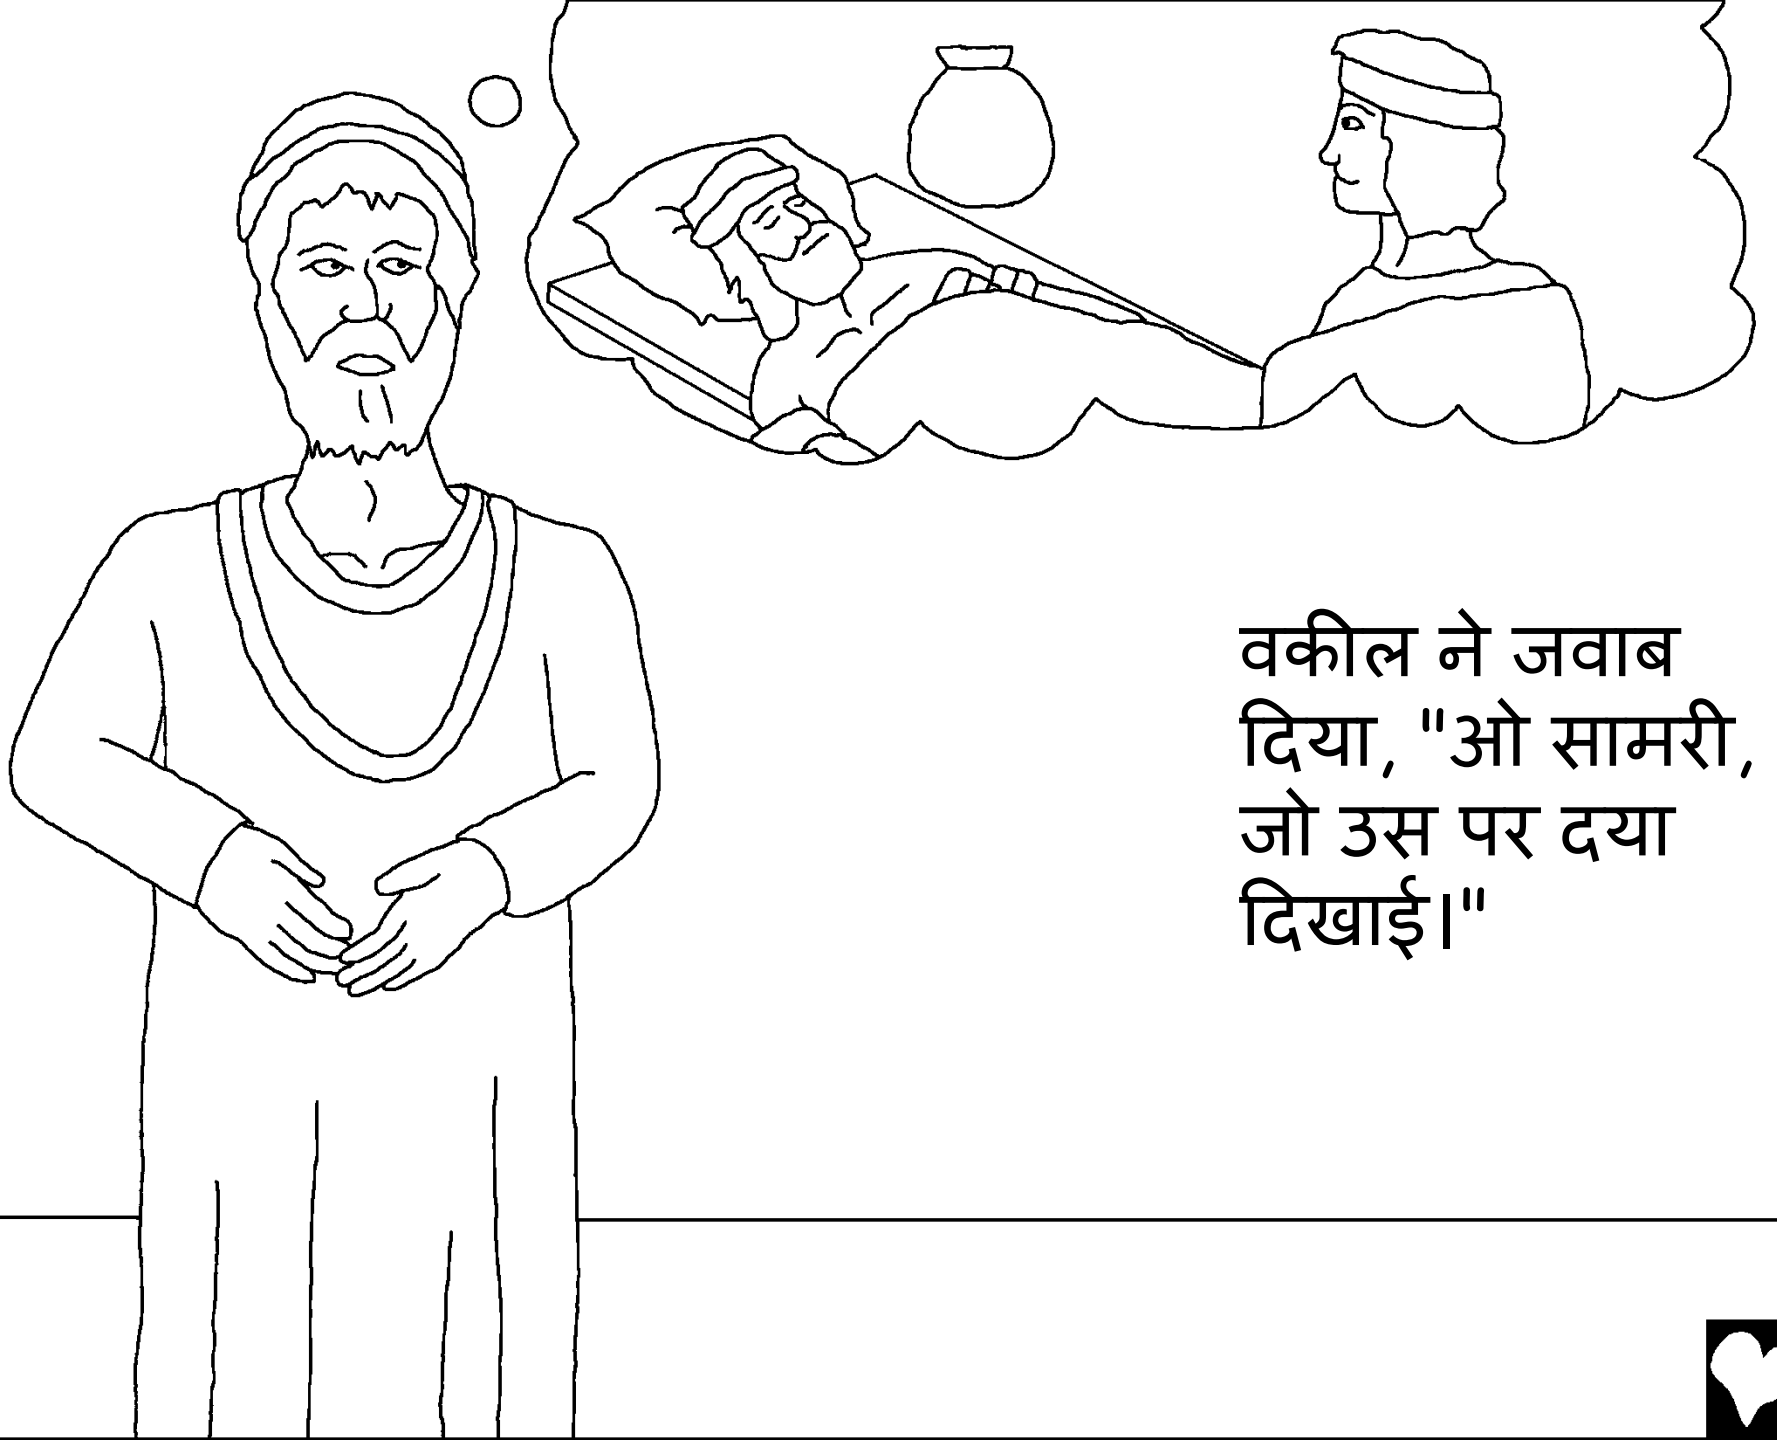 वकील ने जवाब
दिया, "ओ सामरी,
जो उस पर दया
दिखाई।"